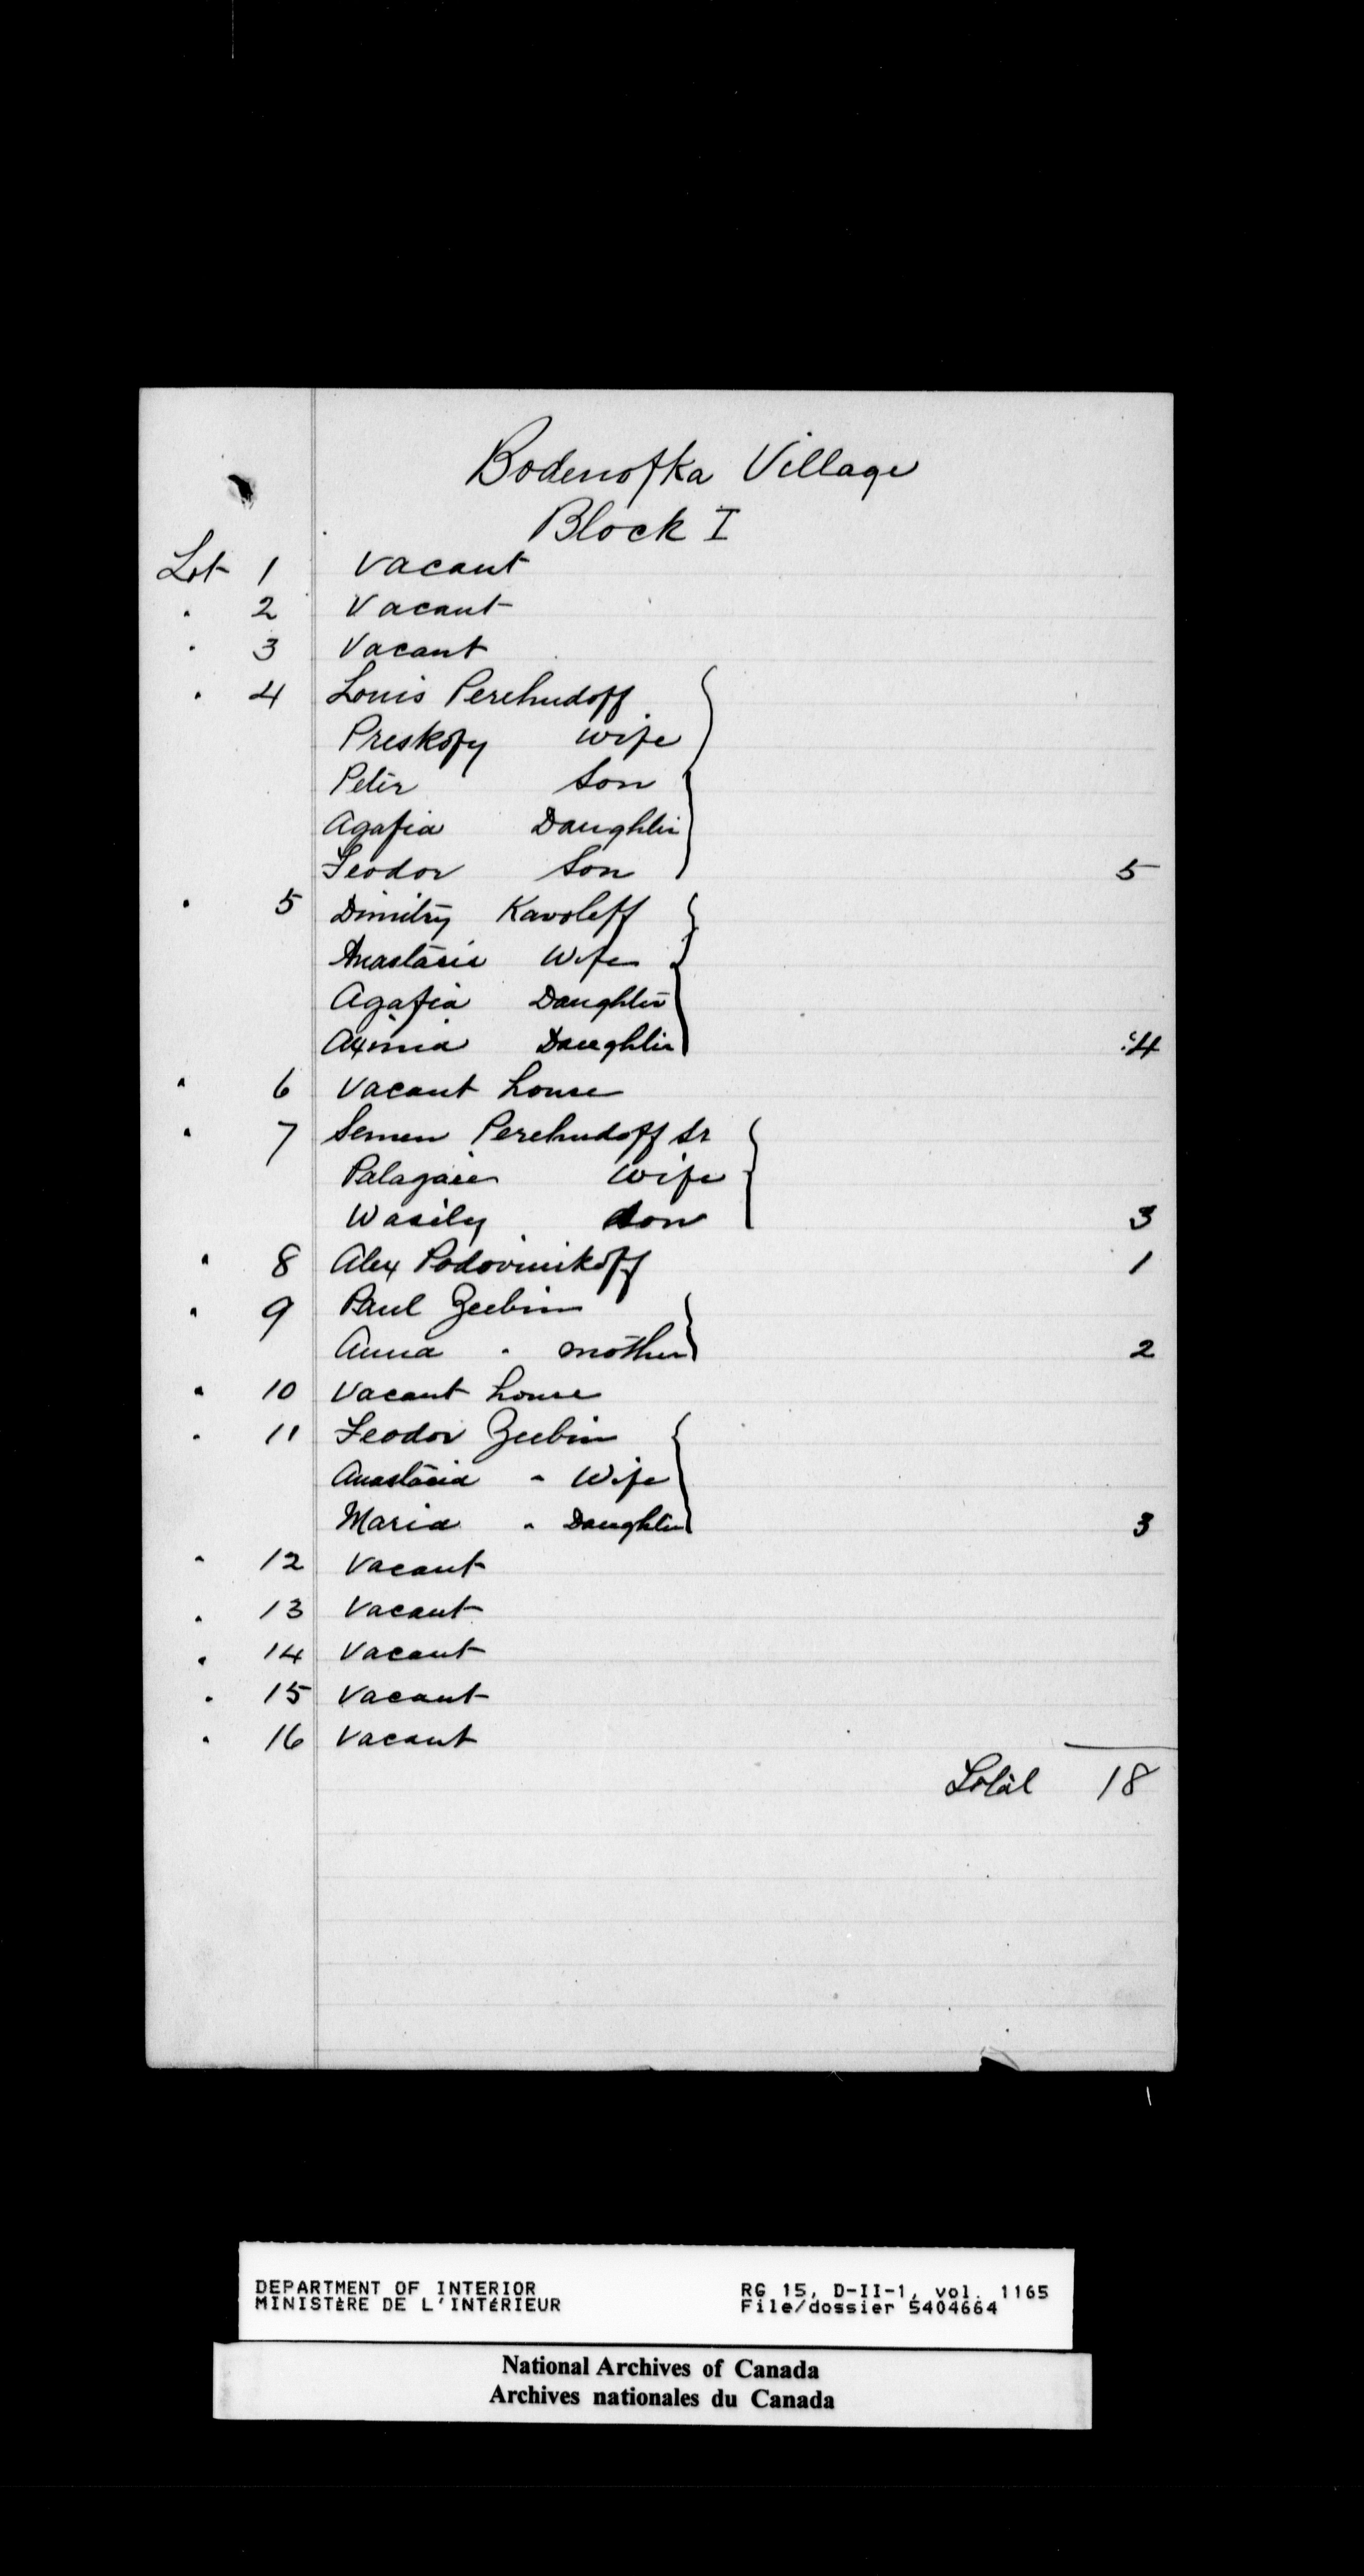 Bodenofka Village
Block I
Lot 1 Vacant
" 2 Vacant
" 3 Vacant
" 4 Louis Perehudoff
Preskofy wife
Peter Son
Agafia Daughter
Feodor Son 5
" 5 Dimitry Kavoleff
Anastasie Wife
Agafia Daughter
Axinia Daughter 4
" 6 Vacant house
" 7 Semen Perehudoff Sr
Palagaie Wife
Wasily son 3
" 8 Alex Podovinikoff 1
" 9 Paul Zeebin
Anna " mother 2
" 10 Vacant house
" 11 Feodor Zeebin
Anastasia " Wife
Maria " Daughter 3
" 12 Vacant
" 13 Vacant
" 14 Vacant
" 15 Vacant
" 16 Vacant
Total 18
DEPARTMENT OF INTERIOR RG 15, D-II-1, vol. 1165
MINISTÈRE DE L'INTÉRIEUR File/dossier 5404664
National Archives of Canada
Archives nationales du Canada